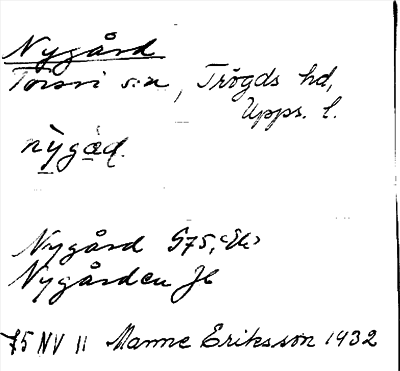 Nygård
Torsvi s:n, Trögds hd,
Upps. l.
nỳgạ̊d.
Nygård G75,
Nygården Jb
75 NV 11 Manne Eriksson 1932